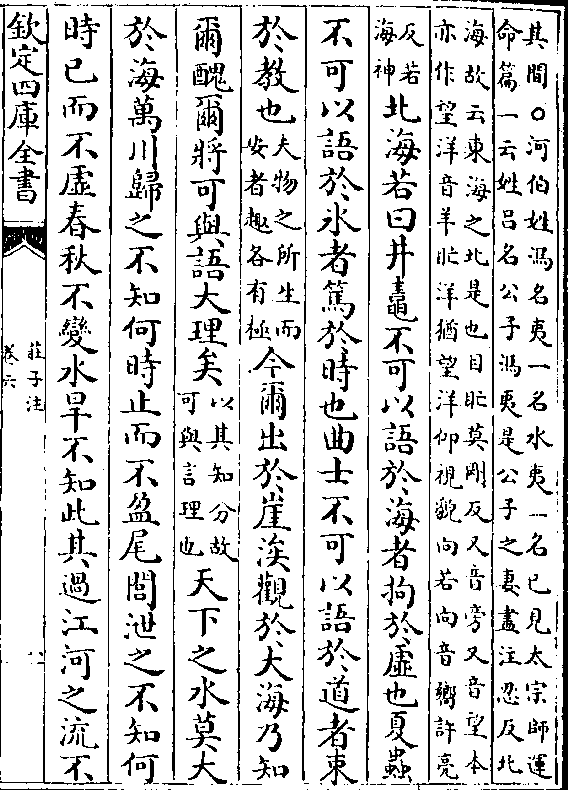 其間○河伯姓馮名夷一名水夷一名已見太宗師運
命篇一云姓吕名公子馮夷是公子之妻盡注忍反北
海故云東海之北是也目盳莫剛反又音旁又音望本
亦作望洋音羊盳洋猶望洋仰視貌向若向音嚮許亮
反若
海神
北海若曰井鼃不可以語於海者拘於虛也夏蟲
不可以語於氷者篤於時也曲士不可以語於道者束
於教也
夫物之所生而
安者趣各有極
今爾出於崖涘觀於大海乃知
爾醜爾將可與語大理矣
以其知分故
可與言理也
天下之水莫大
於海萬川歸之不知何時止而不盈尾閭泄之不知何
時已而不虛春秋不變水旱不知此其過江河之流不
欽定四庫全書
莊子注
卷六
八